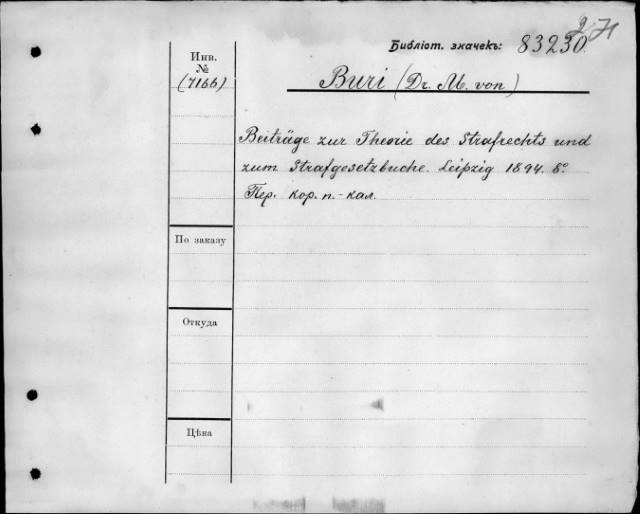 Библіот. значекъ: 83230.
Инв.
№
(7166)
Buri (Dr. M. von)
Beiträge zur Theorie des Strafrechts und
zum Strafgesetzbuche. Leipzig 1894. 8°.
Пер. кор. п.-кал.
По заказу
Откуда
Цѣна